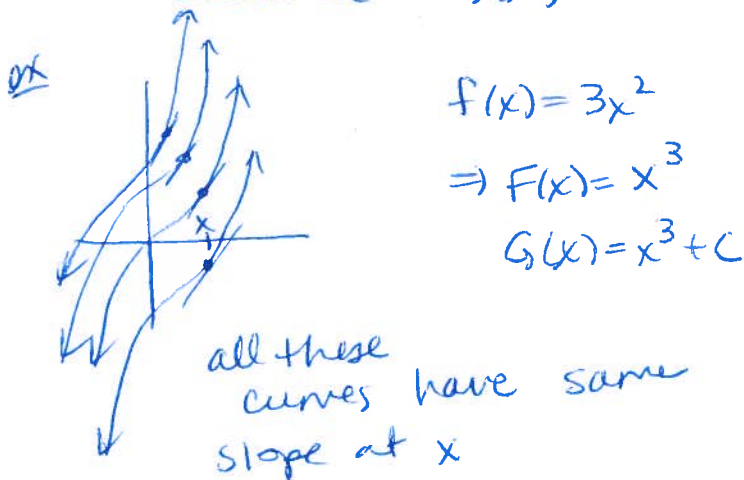 ex
f(x) = 3x²
⇒ F(x) = x³
G(x) = x³ + C
x
all these
curves have same
slope at x